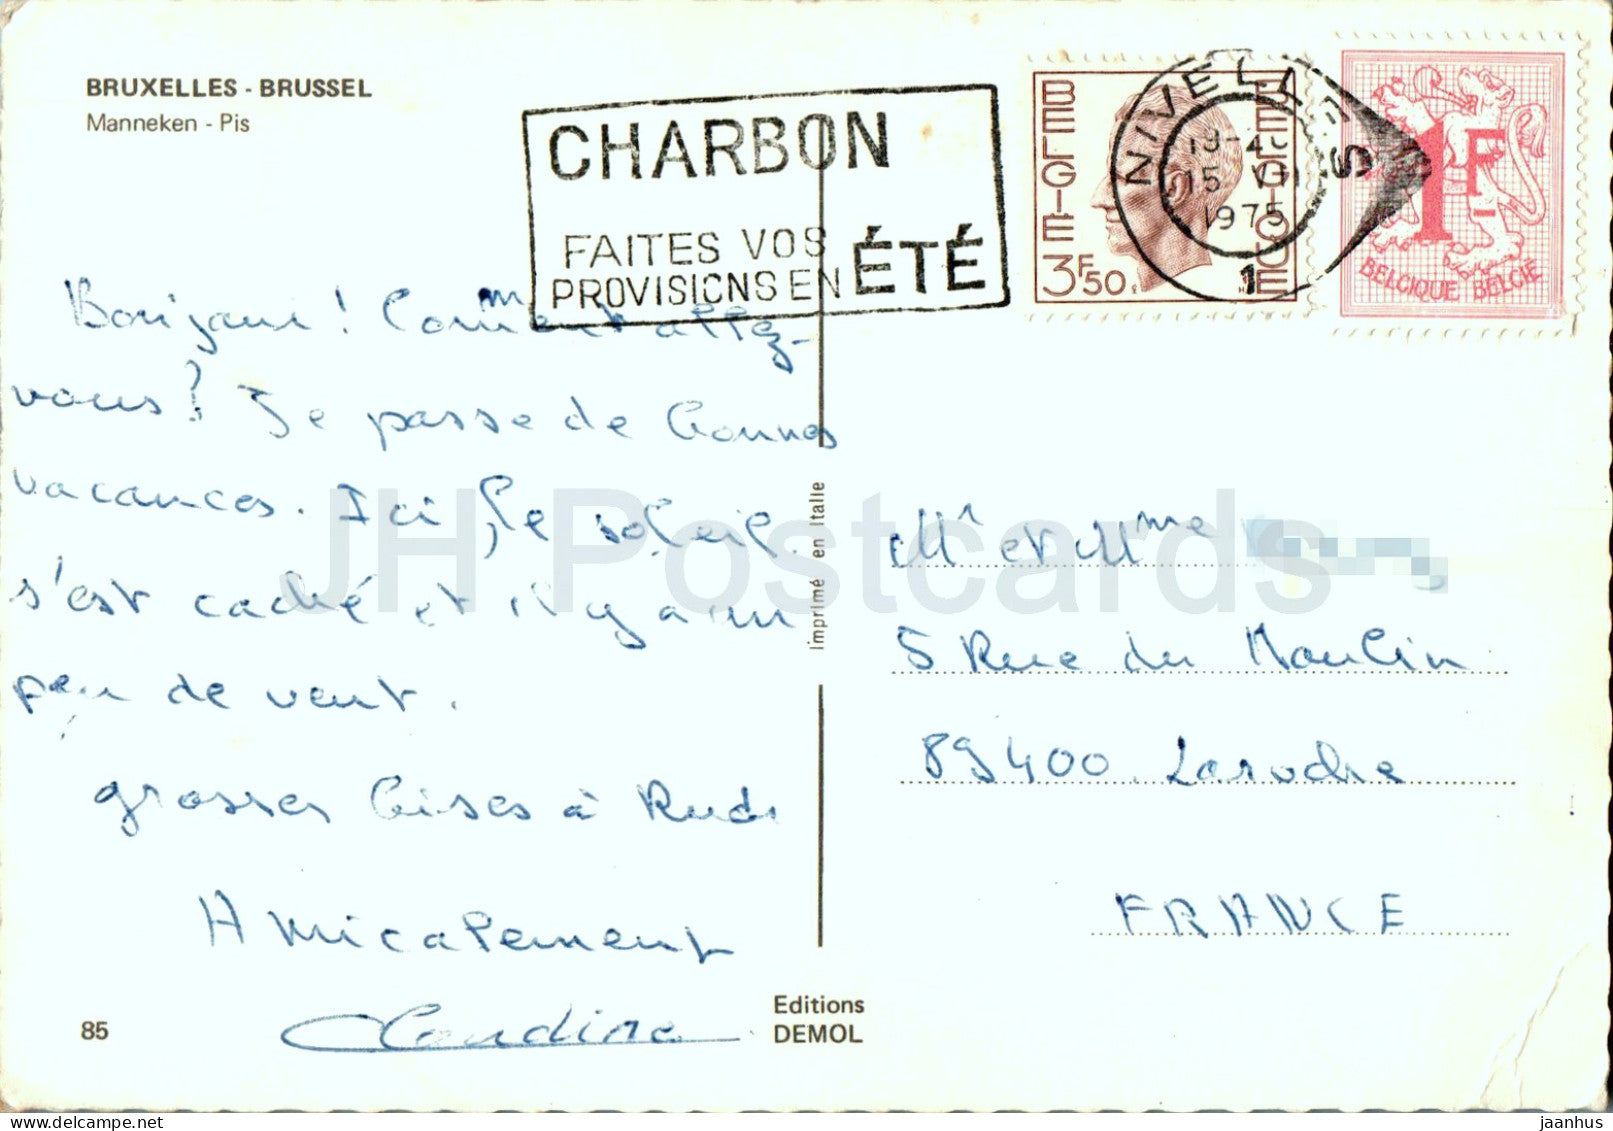 BRUXELLES - BRUSSEL
Manneken - Pis
CHARBON
FAITES VOS
PROVISIONS EN ÉTÉ
BELGIE
3F50
BELGIQUE
NIVELLES
15 VII
1975
1
1F
BELGIQUE BELGIË
Bonjour ! Comment allez-
vous ? Je passe de bonnes
vacances. Ici, le soleil
s'est caché et il y a un
peu de vent.
grosses bises à Rudi
Amicalement
Claudine
85
Editions
DEMOL
Imprimé en Italie
Mr et Mme
5 Rue du Moulin
89400 Laroche
FRANCE
JH Postcards
delcampe.net
jaanhus